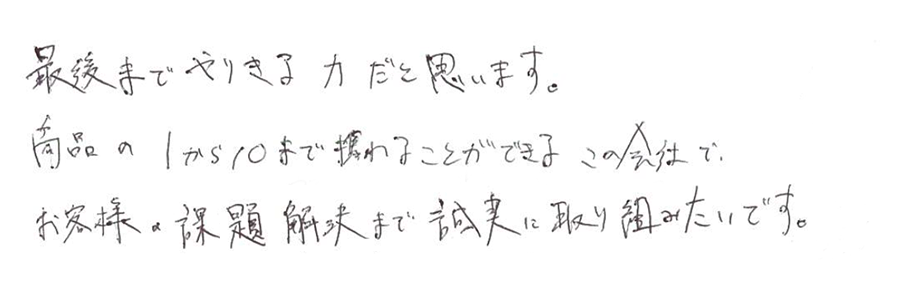 最後までやりきる力だと思います。
商品の1から10まで携われることができるこの会社で、
お客様の課題解決まで誠実に取り組みたいです。